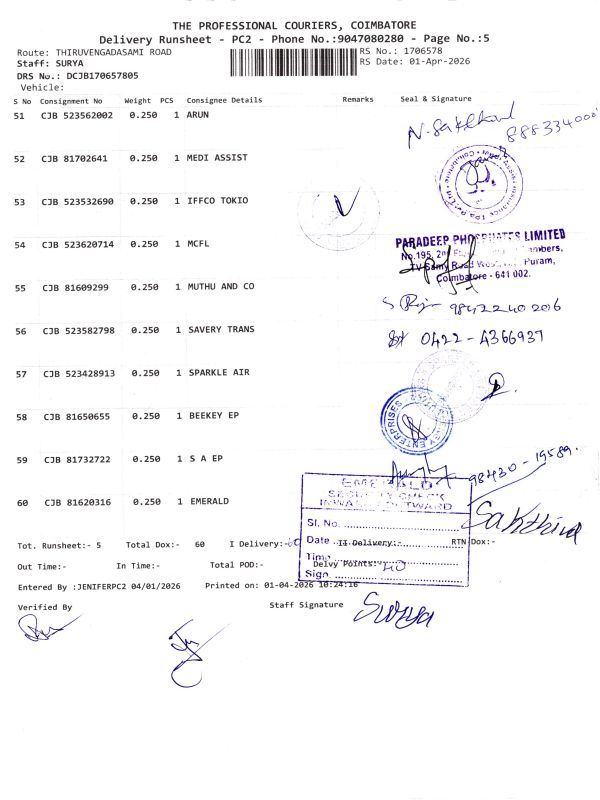 THE PROFESSIONAL COURIERS, COIMBATORE
Delivery Runsheet - PC2 - Phone No.:9047080280 - Page No.:5
Route: THIRUVENGADASAMI ROAD RS No.: 1706578
Staff: SURYA RS Date: 01-Apr-2026
DRS No.: DCJB170657805
Vehicle:
S No Consignment No Weight PCS Consignee Details Remarks Seal & Signature
51 CJB 523562002 0.250 1 ARUN
N. Sakthivel 888334000
52 CJB 81702641 0.250 1 MEDI ASSIST
53 CJB 523532690 0.250 1 IFFCO TOKIO
54 CJB 523620714 0.250 1 MCFL
PARADEEP PHOSPHATES LIMITED
No.195, 2nd
TV Samy Road West, Puram,
Coimbatore - 641 002.
55 CJB 81609299 0.250 1 MUTHU AND CO
98422 40206
56 CJB 523582798 0.250 1 SAVERY TRANS
0422 - 4366937
57 CJB 523428913 0.250 1 SPARKLE AIR
58 CJB 81650655 0.250 1 BEEKEY EP
ENTERPRISES
59 CJB 81732722 0.250 1 S A EP
98430 - 19589.
60 CJB 81620316 0.250 1 EMERALD
EMERALD
SECURITY CHECK
INWARD / OUTWARD
Sl. No.
Date
Time
Sign.
Tot. Runsheet:- 5 Total Dox:- 60 I Delivery:-60 II Delivery:- RTN Dox:-
Out Time:- In Time:- Total POD:- Delvy Points:- 40
Entered By :JENIFERPC2 04/01/2026 Printed on: 01-04-2026 10:24:16
Verified By Staff Signature Surya